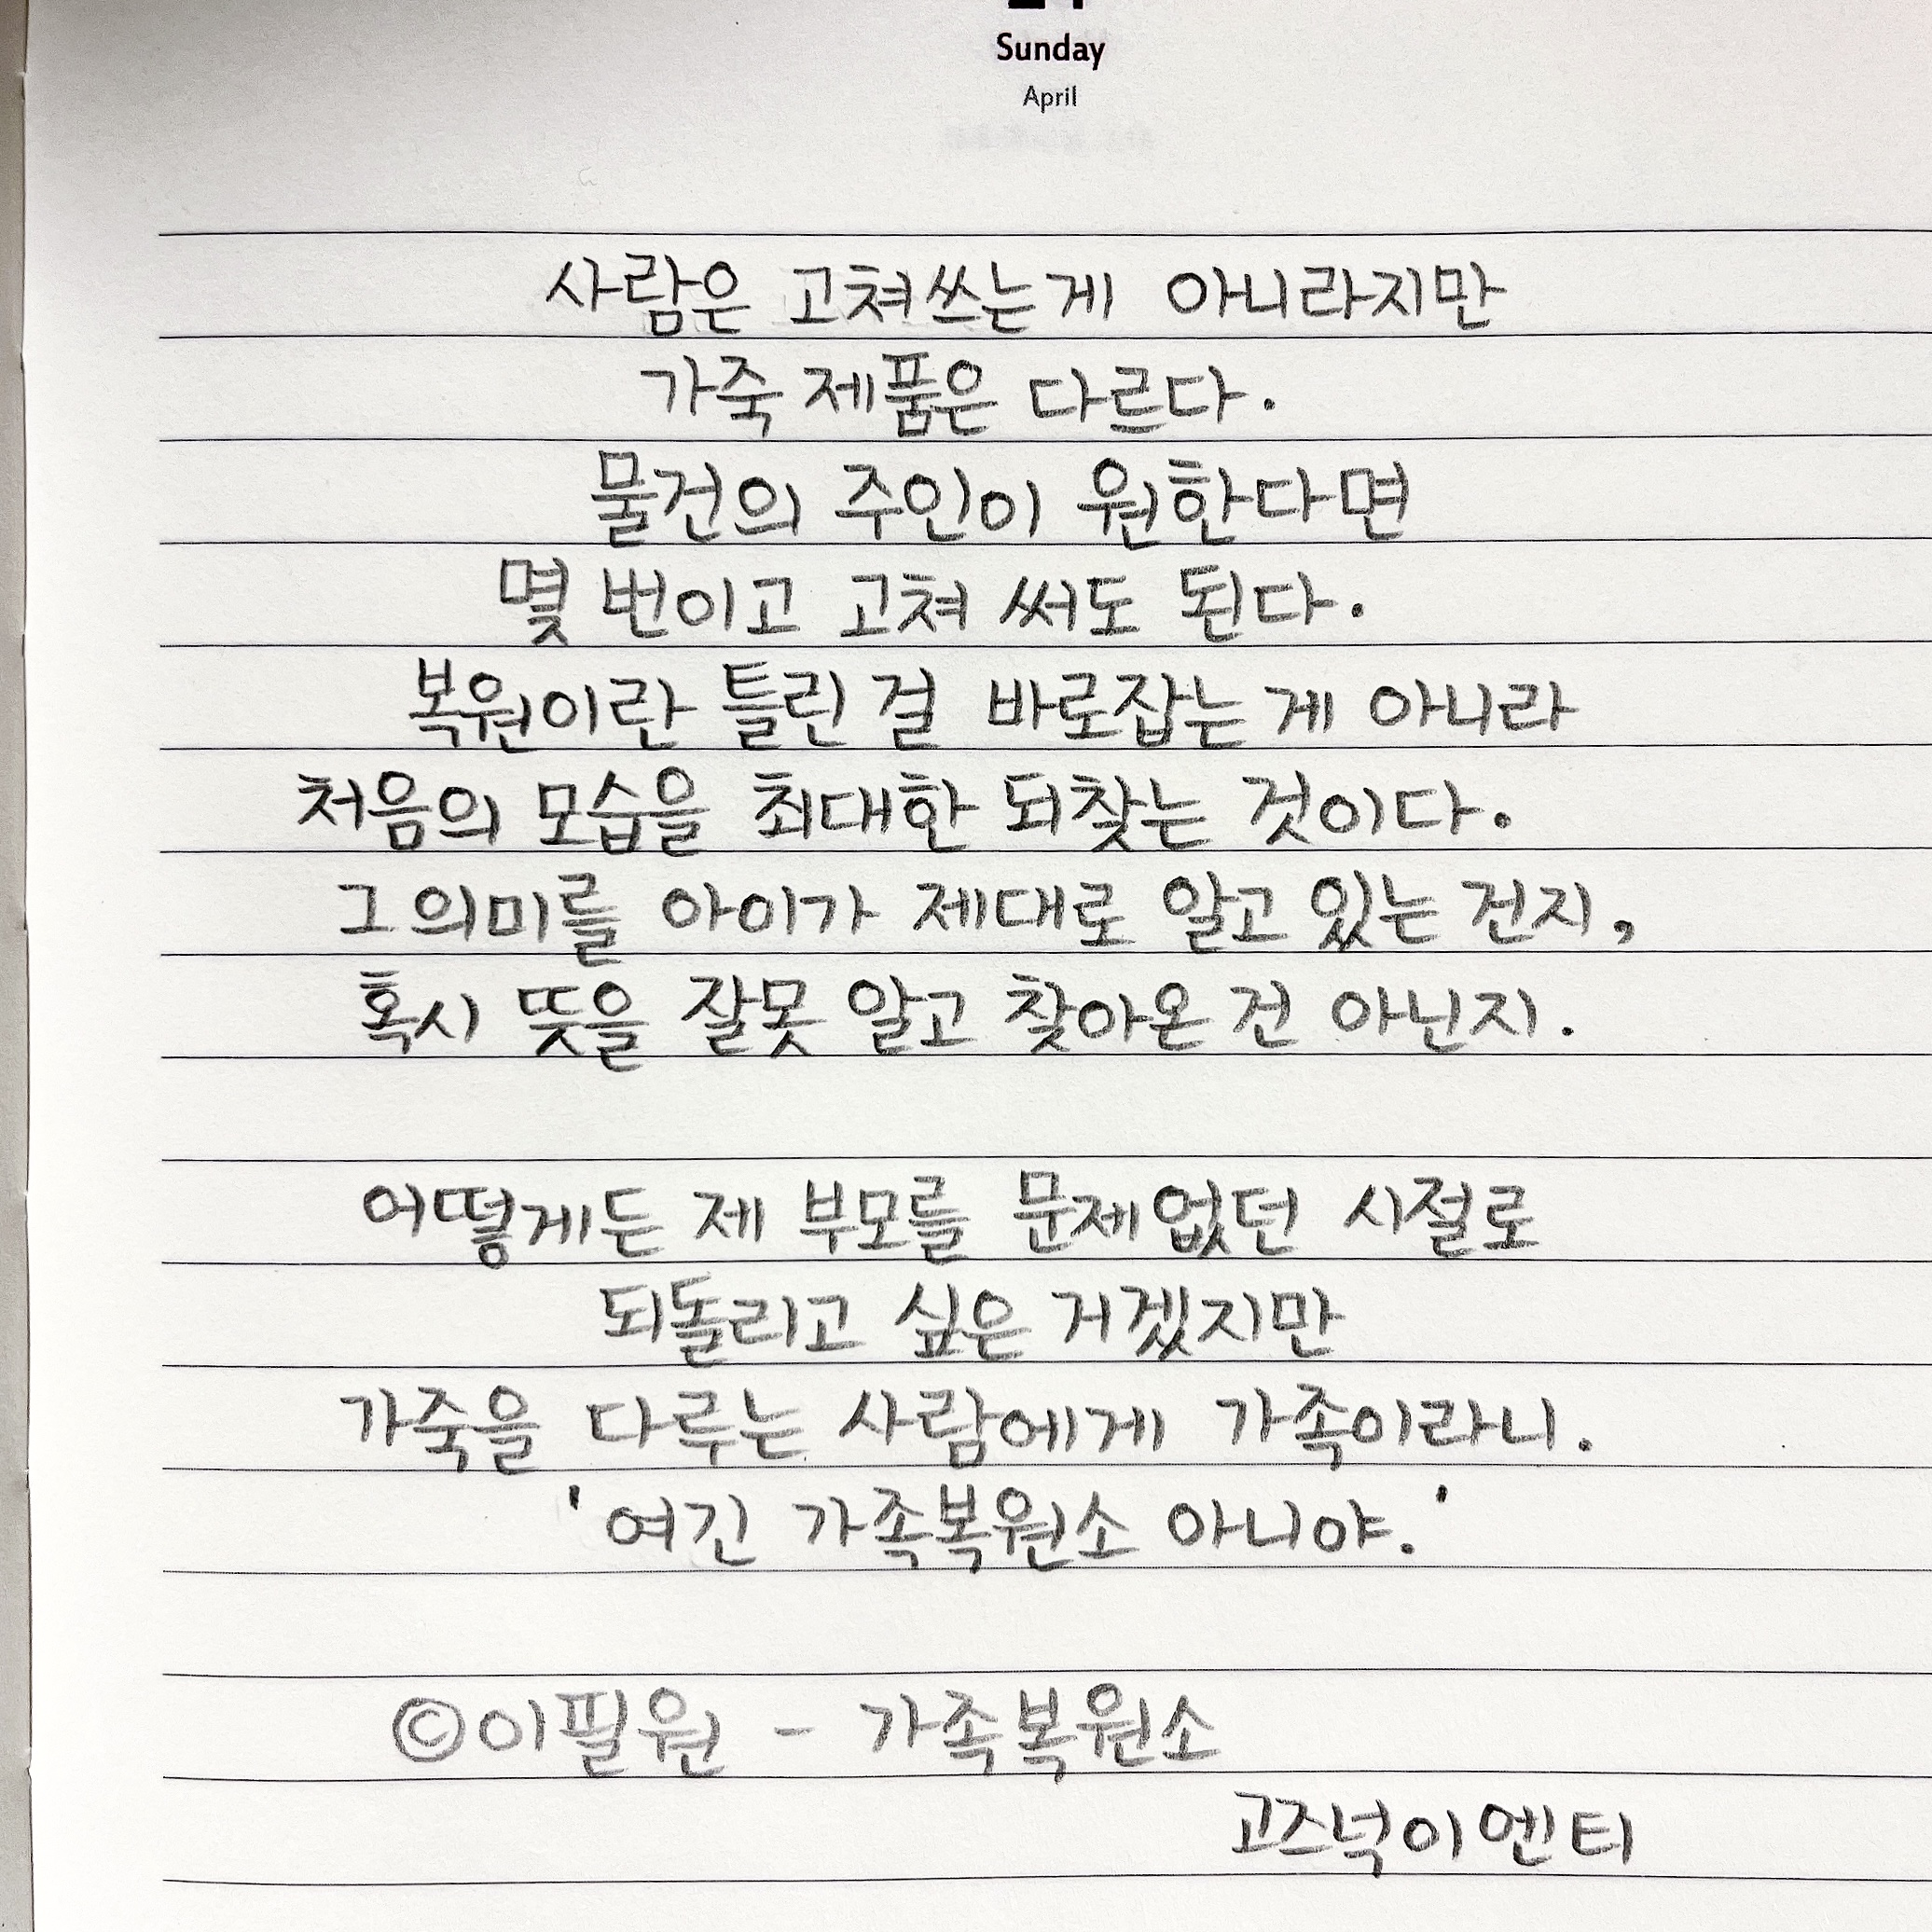 Sunday
April
사람은 고쳐쓰는게 아니라지만
가죽 제품은 다르다.
물건의 주인이 원한다면
몇 번이고 고쳐 써도 된다.
복원이란 틀린 걸 바로잡는 게 아니라
처음의 모습을 최대한 되찾는 것이다.
그 의미를 아이가 제대로 알고 있는 건지,
혹시 뜻을 잘못 알고 찾아온 건 아닌지.
어떻게든 제 부모를 문제없던 시절로
되돌리고 싶은 거겠지만
가죽을 다루는 사람에게 가족이라니.
'여긴 가족복원소 아니야.'
©이필원 - 가족복원소
고즈넉이엔티